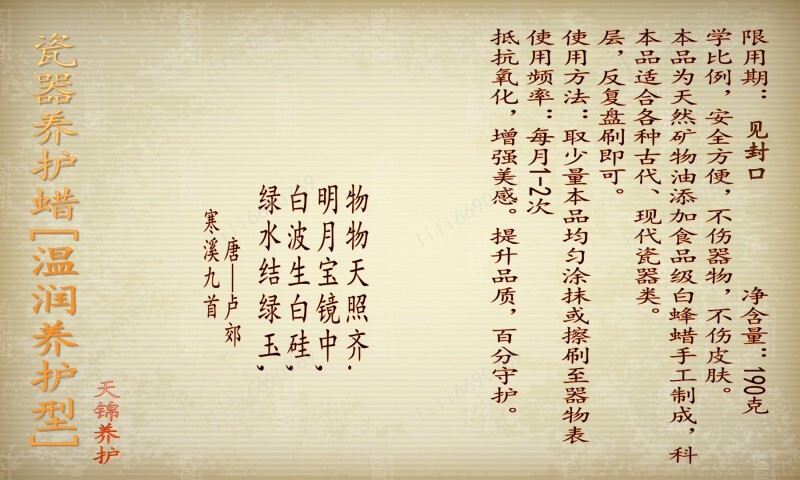 瓷器养护蜡[温润养护型]
天锦养护
寒溪九首
唐—卢郊
绿水结绿玉,
白波生白硅,
明月宝镜中,
物物天照齐.
抵抗氧化，增强美感。提升品质，百分守护。
使用频率：每月1-2次
使用方法：取少量本品均匀涂抹或擦刷至器物表
层，反复盘刷即可。
本品适合各种古代、现代瓷器类。
本品为天然矿物油添加食品级白蜂蜡手工制成，科
学比例，安全方便，不伤器物，不伤皮肤。
限用期：见封口 净含量：190克